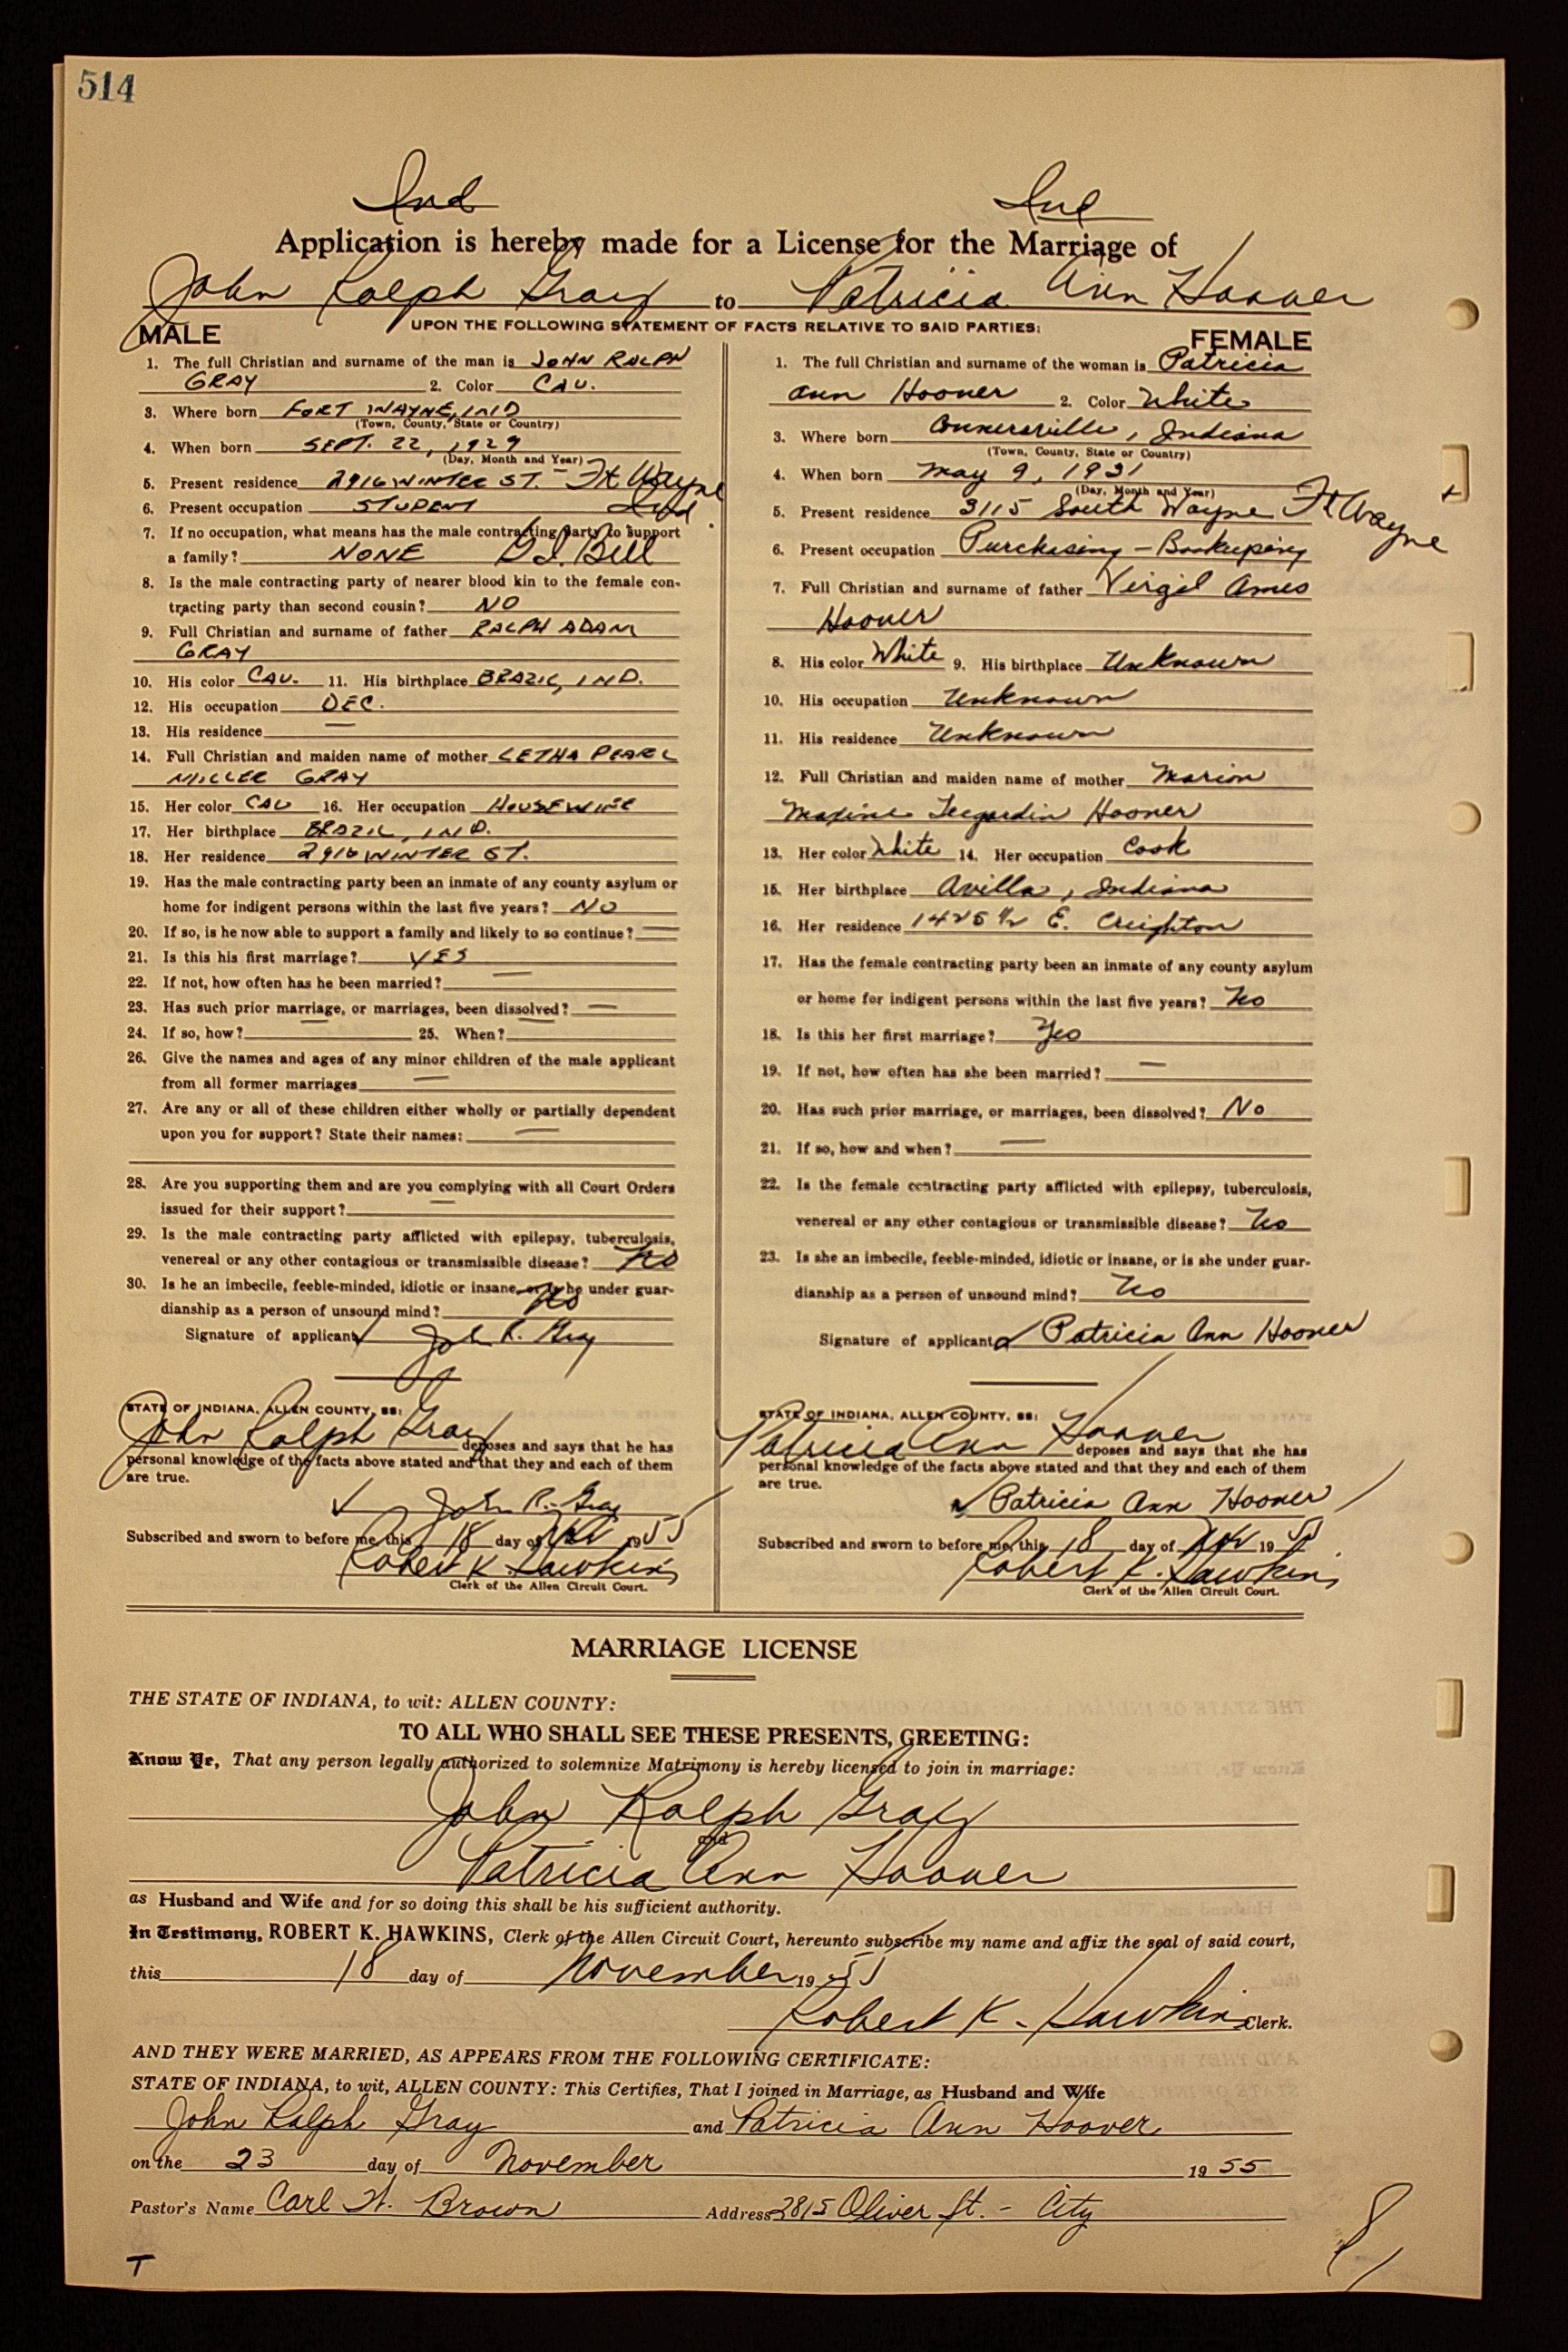 514
Ind Ind
Application is hereby made for a License for the Marriage of
John Ralph Gray to Patricia Ann Hoover
MALE UPON THE FOLLOWING STATEMENT OF FACTS RELATIVE TO SAID PARTIES: FEMALE
1. The full Christian and surname of the man is JOHN RALPH
GRAY 2. Color CAU.
3. Where born FORT WAYNE, IND
(Town, County, State or Country)
4. When born SEPT. 22, 1929
(Day, Month and Year)
5. Present residence 2916 WINTER ST. - Ft Wayne
6. Present occupation STUDENT Ind.
7. If no occupation, what means has the male contracting party to support
a family? NONE G.I. Bill
8. Is the male contracting party of nearer blood kin to the female con-
tracting party than second cousin? NO
9. Full Christian and surname of father RALPH ADAM
GRAY
10. His color CAU. 11. His birthplace BRAZIL, IND.
12. His occupation DEC.
13. His residence —
14. Full Christian and maiden name of mother LETHA PEARL
MILLER GRAY
15. Her color CAU 16. Her occupation HOUSEWIFE
17. Her birthplace BRAZIL, IND.
18. Her residence 2916 WINTER ST.
19. Has the male contracting party been an inmate of any county asylum or
home for indigent persons within the last five years? NO
20. If so, is he now able to support a family and likely to so continue? —
21. Is this his first marriage? YES
22. If not, how often has he been married? —
23. Has such prior marriage, or marriages, been dissolved? —
24. If so, how? — 25. When? —
26. Give the names and ages of any minor children of the male applicant
from all former marriages —
27. Are any or all of these children either wholly or partially dependent
upon you for support? State their names: —
28. Are you supporting them and are you complying with all Court Orders
issued for their support? —
29. Is the male contracting party afflicted with epilepsy, tuberculosis,
venereal or any other contagious or transmissible disease? No
30. Is he an imbecile, feeble-minded, idiotic or insane, or is he under guar-
dianship as a person of unsound mind? No
Signature of applicant John R. Gray
STATE OF INDIANA, ALLEN COUNTY, SS:
John Ralph Gray deposes and says that he has
personal knowledge of the facts above stated and that they and each of them
are true.
John R. Gray
Subscribed and sworn to before me, this 18 day of Nov 1955
Robert K. Hawkins
Clerk of the Allen Circuit Court.
1. The full Christian and surname of the woman is Patricia
Ann Hoover 2. Color White
3. Where born Connersville, Indiana
(Town, County, State or Country)
4. When born May 9, 1931
(Day, Month and Year)
5. Present residence 3115 South Wayne Ft Wayne
6. Present occupation Purchasing - Bookeeping
7. Full Christian and surname of father Virgil Ames
Hoover
8. His color White 9. His birthplace Unknown
10. His occupation Unknown
11. His residence Unknown
12. Full Christian and maiden name of mother Marion
Maxine Hoover
13. Her color White 14. Her occupation Cook
15. Her birthplace Avilla, Indiana
16. Her residence 1425 1/2 E. Creighton
17. Has the female contracting party been an inmate of any county asylum
or home for indigent persons within the last five years? No
18. Is this her first marriage? Yes
19. If not, how often has she been married? —
20. Has such prior marriage, or marriages, been dissolved? No
21. If so, how and when? —
22. Is the female contracting party afflicted with epilepsy, tuberculosis,
venereal or any other contagious or transmissible disease? No
23. Is she an imbecile, feeble-minded, idiotic or insane, or is she under guar-
dianship as a person of unsound mind? No
Signature of applicant Patricia Ann Hoover
STATE OF INDIANA, ALLEN COUNTY, SS:
Patricia Ann Hoover deposes and says that she has
personal knowledge of the facts above stated and that they and each of them
are true.
Patricia Ann Hoover
Subscribed and sworn to before me, this 18 day of Nov 1955
Robert K. Hawkins
Clerk of the Allen Circuit Court.
MARRIAGE LICENSE
THE STATE OF INDIANA, to wit: ALLEN COUNTY:
TO ALL WHO SHALL SEE THESE PRESENTS, GREETING:
Know Ye, That any person legally authorized to solemnize Matrimony is hereby licensed to join in marriage:
John Ralph Gray
and
Patricia Ann Hoover
as Husband and Wife and for so doing this shall be his sufficient authority.
In Testimony, ROBERT K. HAWKINS, Clerk of the Allen Circuit Court, hereunto subscribe my name and affix the seal of said court,
this 18 day of November 1955
Robert K. Hawkins Clerk.
AND THEY WERE MARRIED, AS APPEARS FROM THE FOLLOWING CERTIFICATE:
STATE OF INDIANA, to wit, ALLEN COUNTY: This Certifies, That I joined in Marriage, as Husband and Wife
John Ralph Gray and Patricia Ann Hoover
on the 23 day of November 1955
Pastor's Name Carl H. Brown Address 2815 Oliver St. - City
T